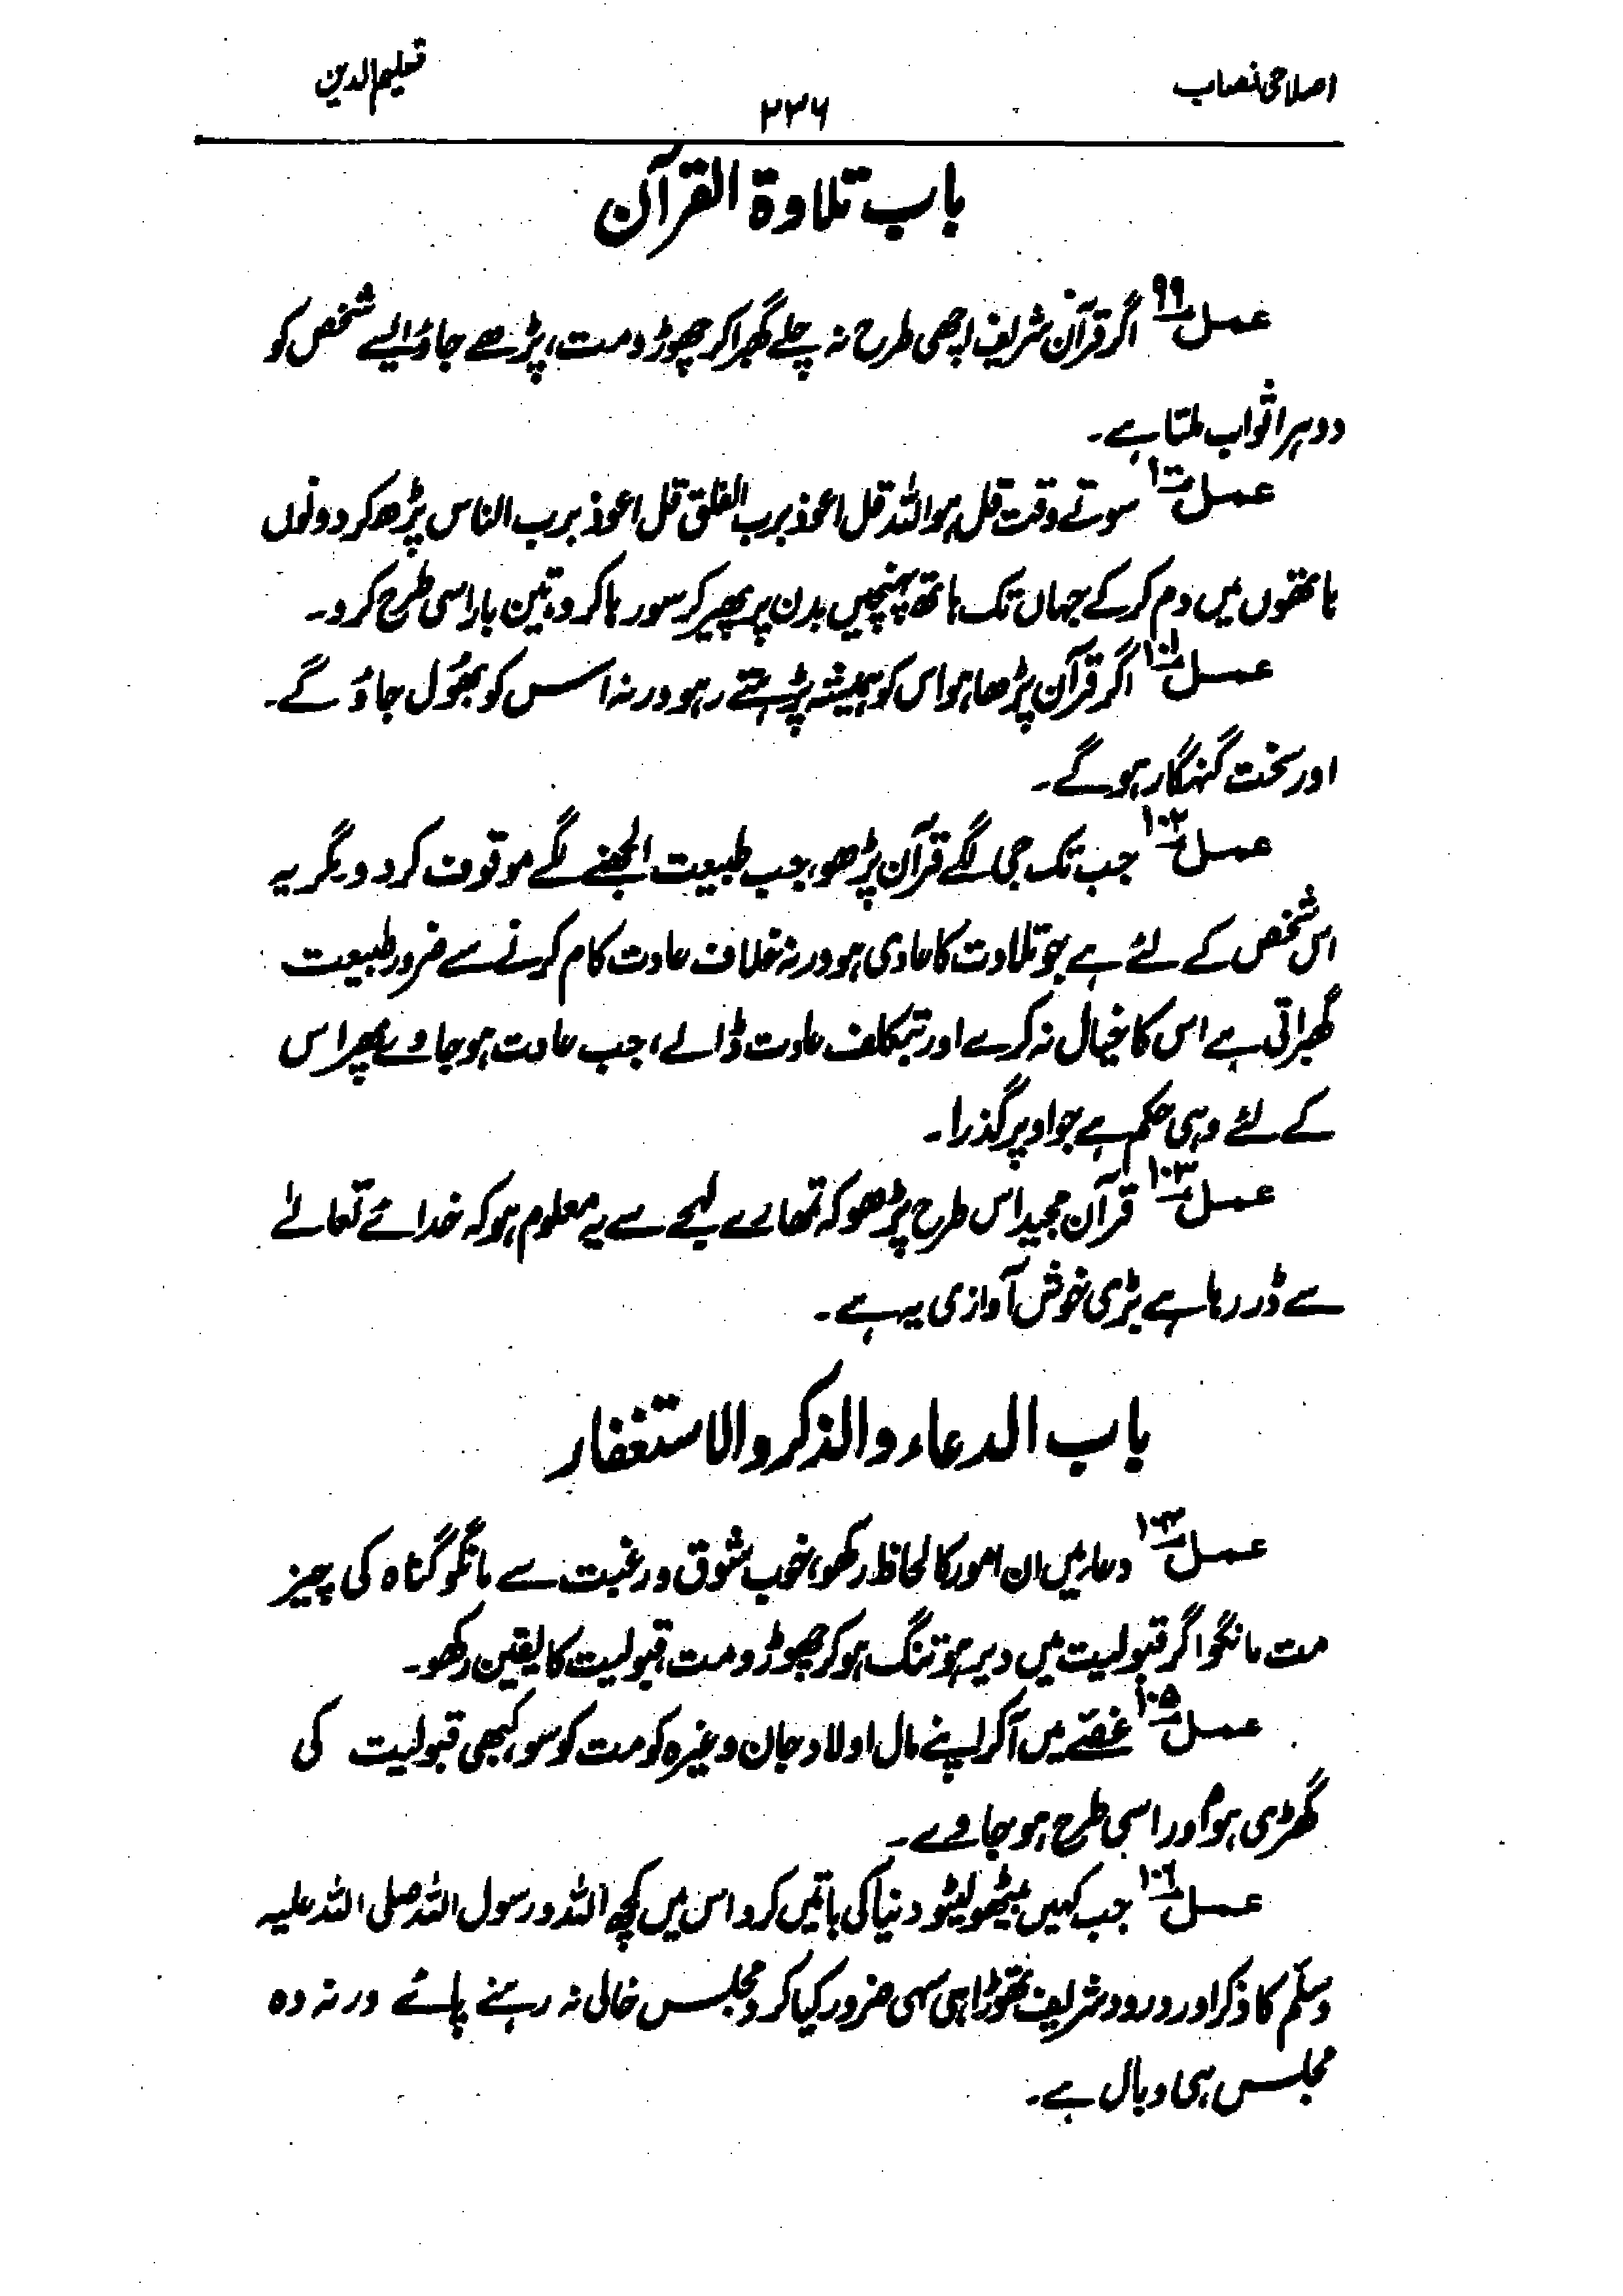 اصلاحی نصاب
۲۳۶
تعلیم الدین
باب تلاوۃ القرآن
عمل ۹۹ اگر قرآن شریف اچھی طرح نہ چلے گھبرا کر چھوڑو مت، پڑھے جاؤ ایسے شخص کو
دوہرا ثواب ملتا ہے۔
عمل ۱۰۰ سوتے وقت قل ہو اللہ قل اعوذ برب الفلق قل اعوذ برب الناس پڑھ کر دونوں
ہاتھوں میں دم کر کے جہاں تک ہاتھ پہنچیں بدن پر پھیر کر سو رہا کرو، تین بار اسی طرح کرو۔
عمل ۱۰۱ اگر قرآن پڑھا ہو اس کو ہمیشہ پڑھتے رہو ورنہ اس کو بھُول جاؤ گے۔
اور سخت گنہگار ہو گے۔
عمل ۱۰۲ جب تک جی لگے قرآن پڑھو، جب طبیعت الجھنے لگے موقوف کر دو مگر یہ
اس شخص کے لئے ہے جو تلاوت کا عادی ہو ورنہ خلاف عادت کام کرنے سے ضرور طبیعت
گھبراتی ہے اس کا خیال نہ کرے اور بتکلف عادت ڈالے، جب عادت ہو جاوے پھر اس
کے لئے وہی حکم ہے جو اوپر گذرا۔
عمل ۱۰۳ قرآن مجید اس طرح پڑھو کہ تمھارے لہجے سے یہ معلوم ہو کہ خدائے تعالےٰ
سے ڈر رہا ہے بڑی خوش آوازی یہ ہے۔
باب الدعاء والذکر والاستغفار
عمل ۱۰۴ دعا میں ان امور کا لحاظ رکھو، خوب شوق و رغبت سے مانگو گناہ کی چیز
مت مانگو اگر قبولیت میں دیر ہو تنگ ہو کر چھوڑو مت، قبولیت کا یقین رکھو۔
عمل ۱۰۵ غصّے میں آکر اپنے مال اولاد جان وغیرہ کو مت کوسو، کبھی قبولیت کی
گھڑی ہو اور اسی طرح ہو جاوے۔
عمل ۱۰۶ جب کہیں بیٹھو لیٹو دنیا کی باتیں کرو اس میں کچھ اللہ و رسول اللہ صلی اللہ علیہ
وسلّم کا ذکر اور درود شریف تھوڑا ہی سہی ضرور کیا کرو مجلس خالی نہ رہنے پائے ورنہ وہ
مجلس ہی وبال ہے۔